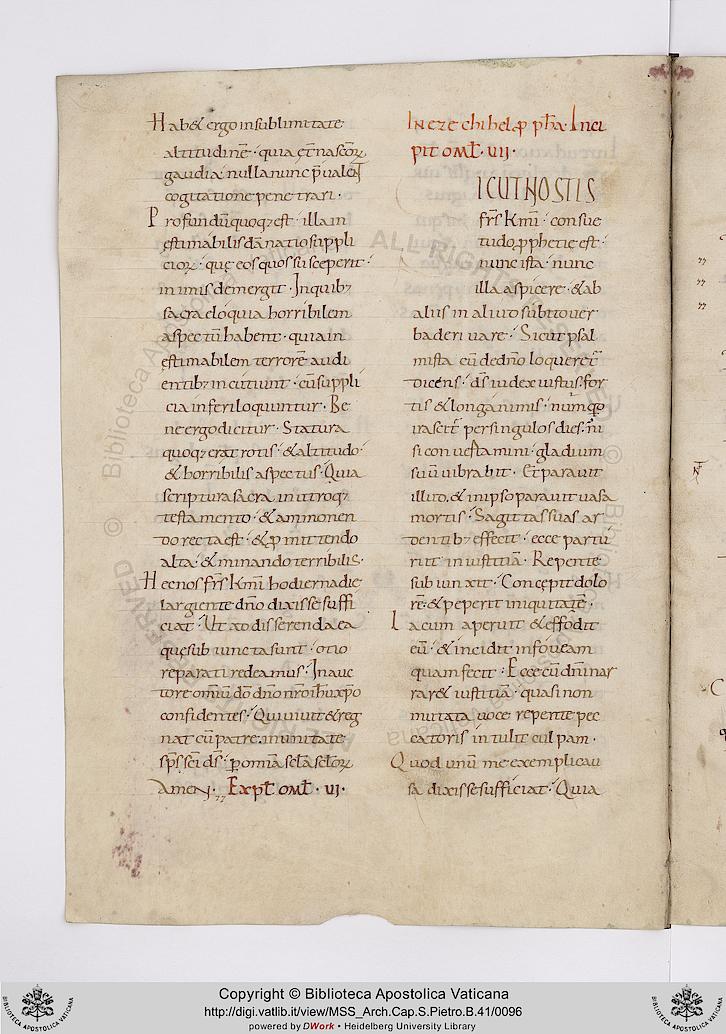 Hab& ergo insublimitate
altitudinē · quia c̄t nascorꝝ
gaudia · nulla nunc p̄ualen&
cogitatione penetrari ·
Profundū quoqꝫ est · illa in
estimabilis dānatio suppli
ciorꝝ · quę eos quos susceperit ·
in imis demergit · Inquibꝫ
sacra eloquia horribilem
aspectū habent · quia in
ęstimabilem terrorē audi
entibꝫ incutiunt · cū suppli
cia inferi loquuntur · Be
ne ergo dicitur · Statura
quoqꝫ erat rotis · & altitudo ·
& horribilis aspectus · Quia
scriptura sacra in utroqꝫ
testamento · & ammonen
do recta est · & ꝓmittendo
alta · & minando terribilis ·
Hęc nos fr̄s km̄i hodierna die
largiente dn̄o dixisse suffi
ciat · Ut ad disserenda ea
quę subiuncta sunt · otio
reparati redeamus · In auc
tore omniū dō dn̄o nr̄o ih̄u xp̄o
confidentes · Qui uiuit & reg
nat cū patre. in unitate
sp̄s sc̄i d̄s · ꝑ omnia sc̄la sc̄lorꝝ
Amen · Explt̄ omt̄ · ui ·
In ezechihel ꝓph̄a · Inci
pit omt̄ · uii ·
ICUT NOSTIS
fr̄s km̄i · consue
tudo ꝓphetię est ·
nunc ista · nunc
illa aspicere · & ab
alus in alia to subito uer
ba deriuare · Sicut psal
mista cū de dn̄o loquer&̄
dicens · d̄s iudex iustus · for
tis & longanimis · nūquid
irascit̄ per singulos dies · n̄i
si conuersi fueritis · gladium
suū uibrabit · Et parauit
illū to, & in ipso parauit uasa
mortis · Sagittas suas ar
dentibꝫ effecit · ecce partu
riit iniustitiā · Repente
subiunxit · Concepit dolo
rē · & peperit iniquitatē ·
Lacum aperuit & effodit
eū · & incidit in foueam
quam fecit · Ecce cū dn̄i nar
rar& iustitiā · quasi non
mutata uoce repente pec
catoris intulit culpam ·
Quod unū me exempli cau
sa dixisse sufficiat · Quia
Copyright © Biblioteca Apostolica Vaticana
http://digi.vatlib.it/view/MSS_Arch.Cap.S.Pietro.B.41/0096
powered by DWork • Heidelberg University Library